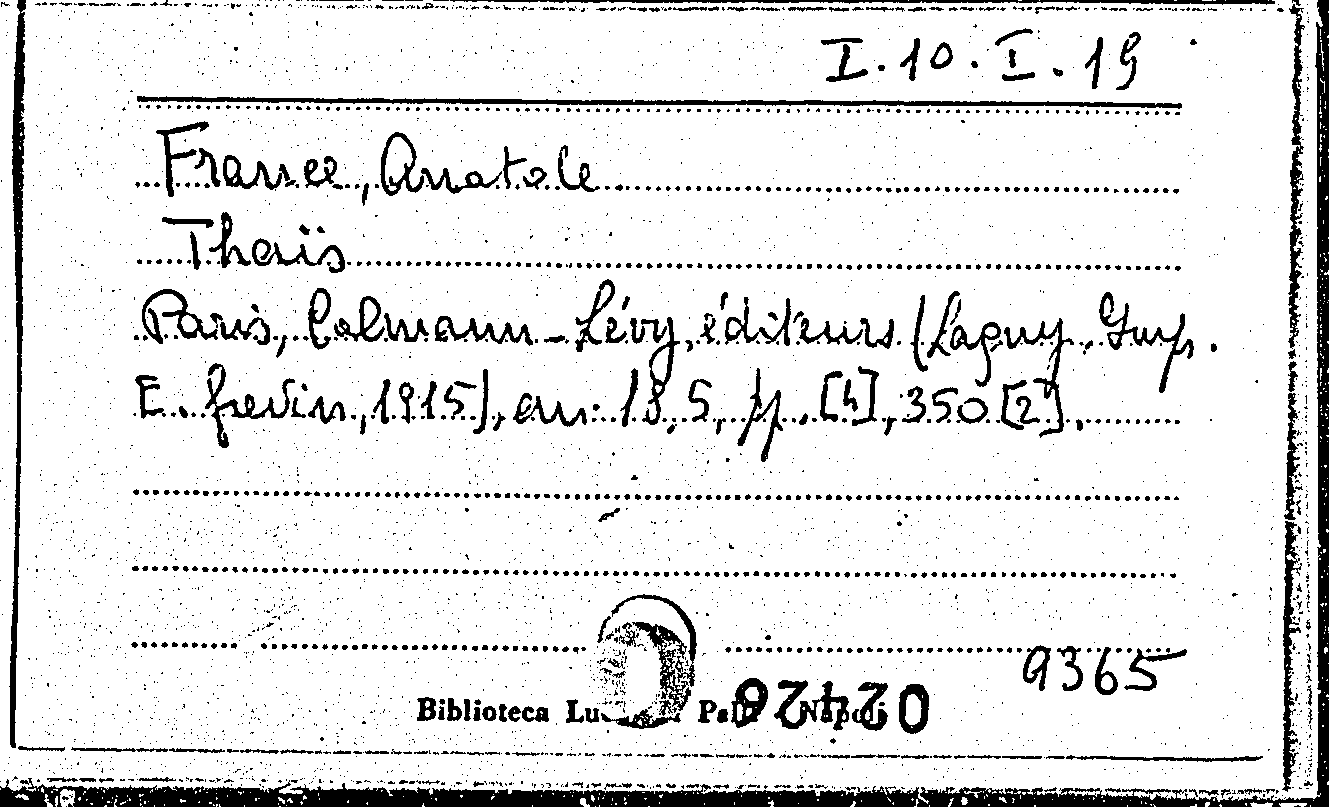 I.10.I.19
France, Anatole
Thaïs
Paris, Calmann-Lévy, éditeurs (Lagny, Imp.
E. Grevin, 1915), cm. 18,5, pp. [4], 350 [2].
9365
Biblioteca Napoli
02426